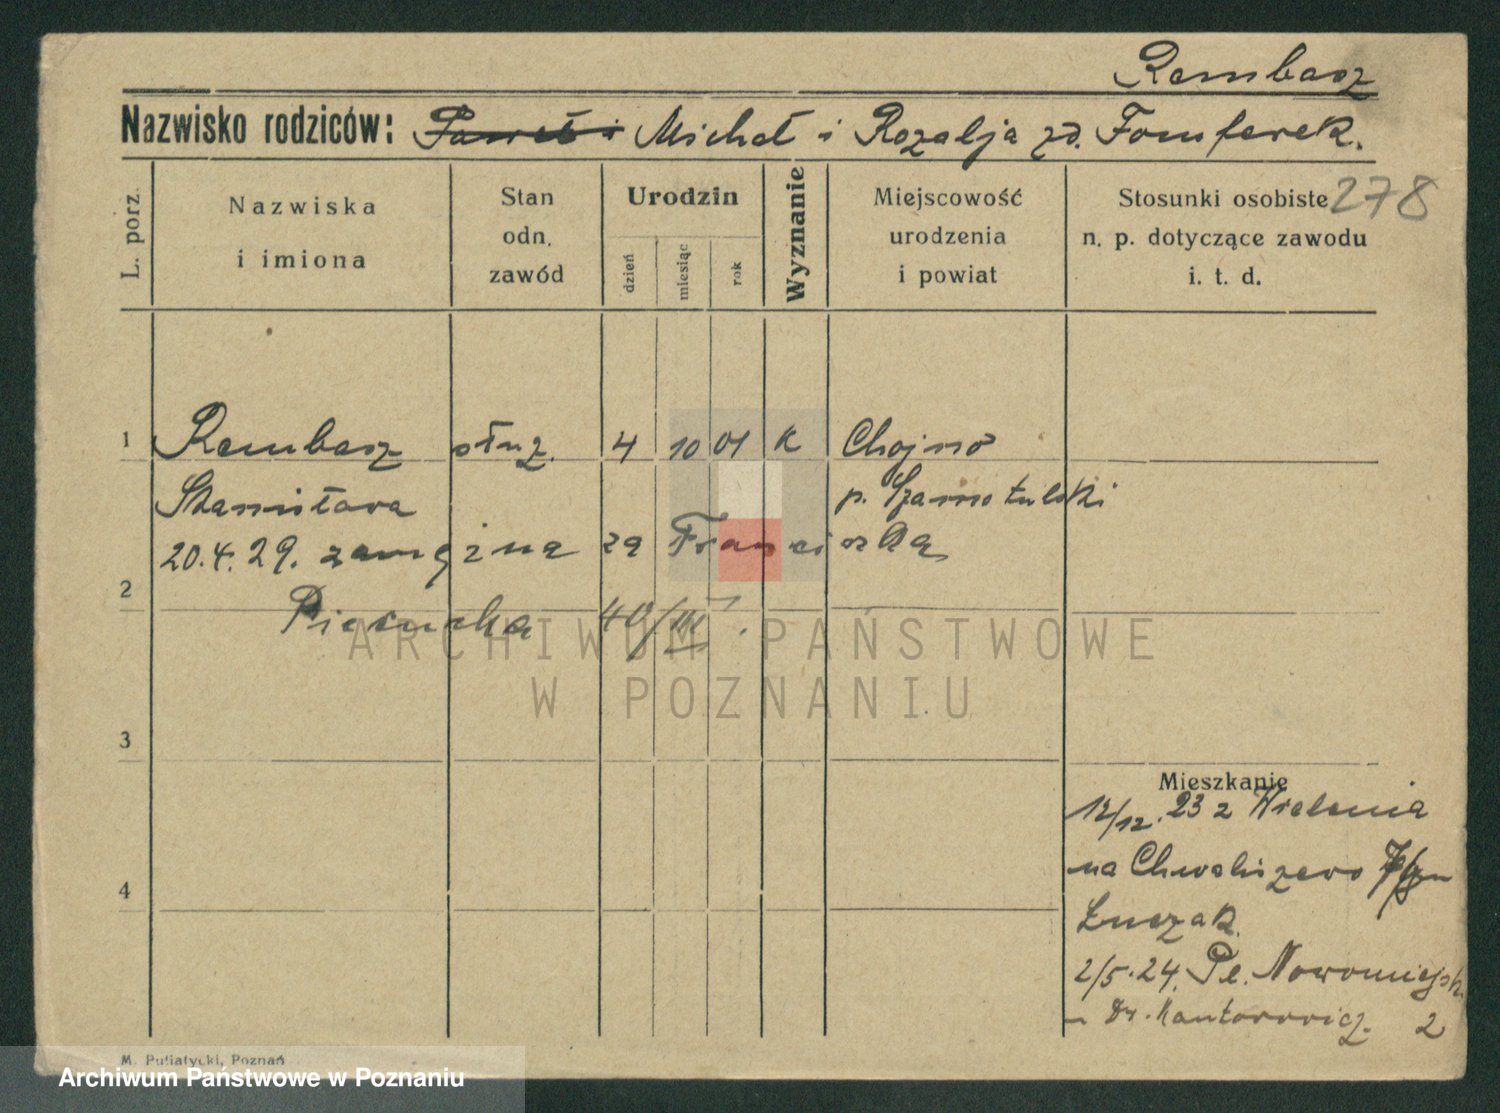 Rembasz
Nazwisko rodziców: Paweł i Michał i Rozalja zd. Fomferek.
278
L. porz.
Nazwiska
i imiona
Stan
odn.
zawód
Urodzin
dzień
miesiąc
rok
Wyznanie
Miejscowość
urodzenia
i powiat
Stosunki osobiste
n. p. dotyczące zawodu
i. t. d.
1 Rembasz służ. 4 10 01 K Chojno
Stanisława p. Szamotulski
20.4.29. zamężna za Franciszka
2
Piesucha 40/III.
3
4
Mieszkanie
12/12.23 z Wielenia
na Chwaliszewo
Łuczak.
2/5.24. Pl. Nowomiejsk.
Dr. Kantorowicz. 2
M. Putiatycki, Poznań
ARCHIWUM PAŃSTWOWE
W POZNANIU
Archiwum Państwowe w Poznaniu